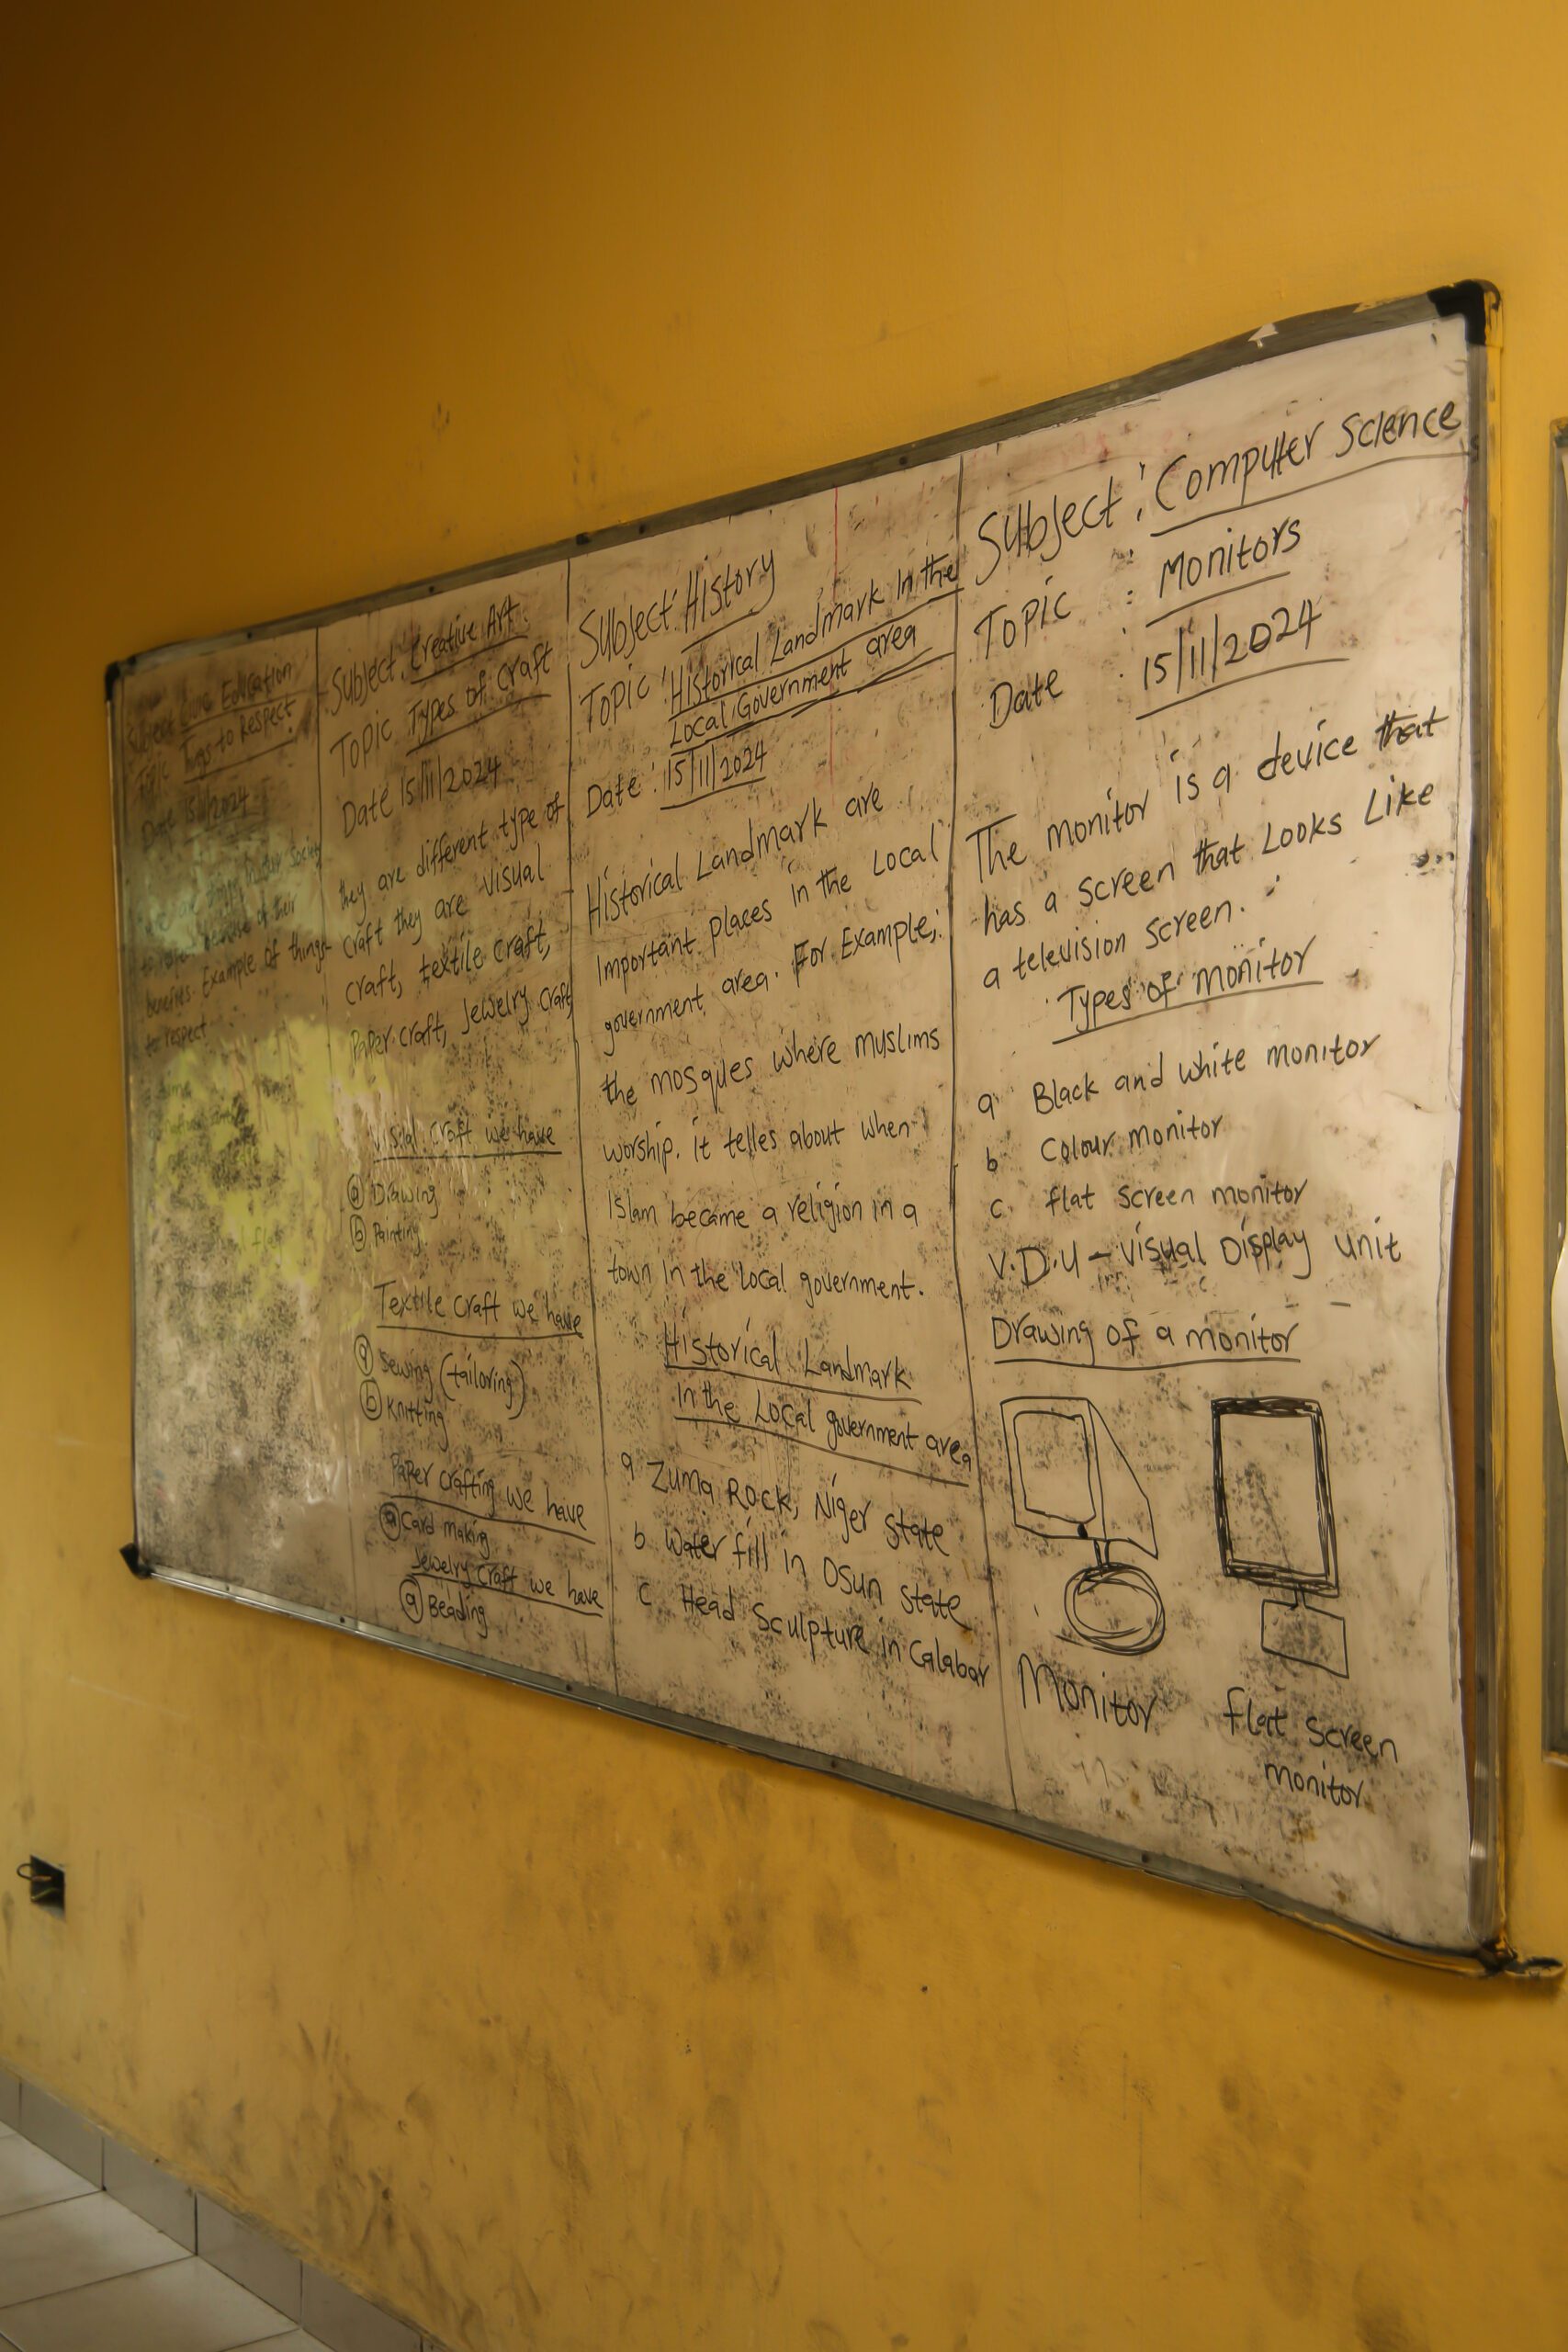 Subject Civic Education
Topic Things to Respect
Date 15/11/2024
Society
because of their
benefits. Example of things
to respect
Subject: Creative Art
Topic Types of Craft
Date 15/11/2024
they are different type of
Craft they are Visual
craft, textile craft,
Paper craft, Jewelry Craft
Visual Craft we have
a Drawing
b Painting
Textile Craft we have
a Sewing (tailoring)
b Knitting
Paper Crafting we have
a Card Making
Jewelry Craft we have
a Beading
Subject: History
Topic: Historical Landmark In the
Local Government area
Date: 15/11/2024
Historical Landmark are
Important places in the Local
government area. For Example;
the mosques where muslims
worship. it telles about when
Islam became a religion in a
town in the local government.
Historical Landmark
In the Local government area
a Zuma Rock, Niger state
b Water fill in Osun state
C Head Sculpture in Calabar
Subject: Computer Science
Topic : Monitors
Date : 15/11/2024
The monitor is a device that
has a screen that Looks Like
a television screen.
Types of monitor
a Black and white monitor
b Colour monitor
c flat screen monitor
V.D.U - Visual Display unit
Drawing of a monitor
Monitor
flat screen
monitor